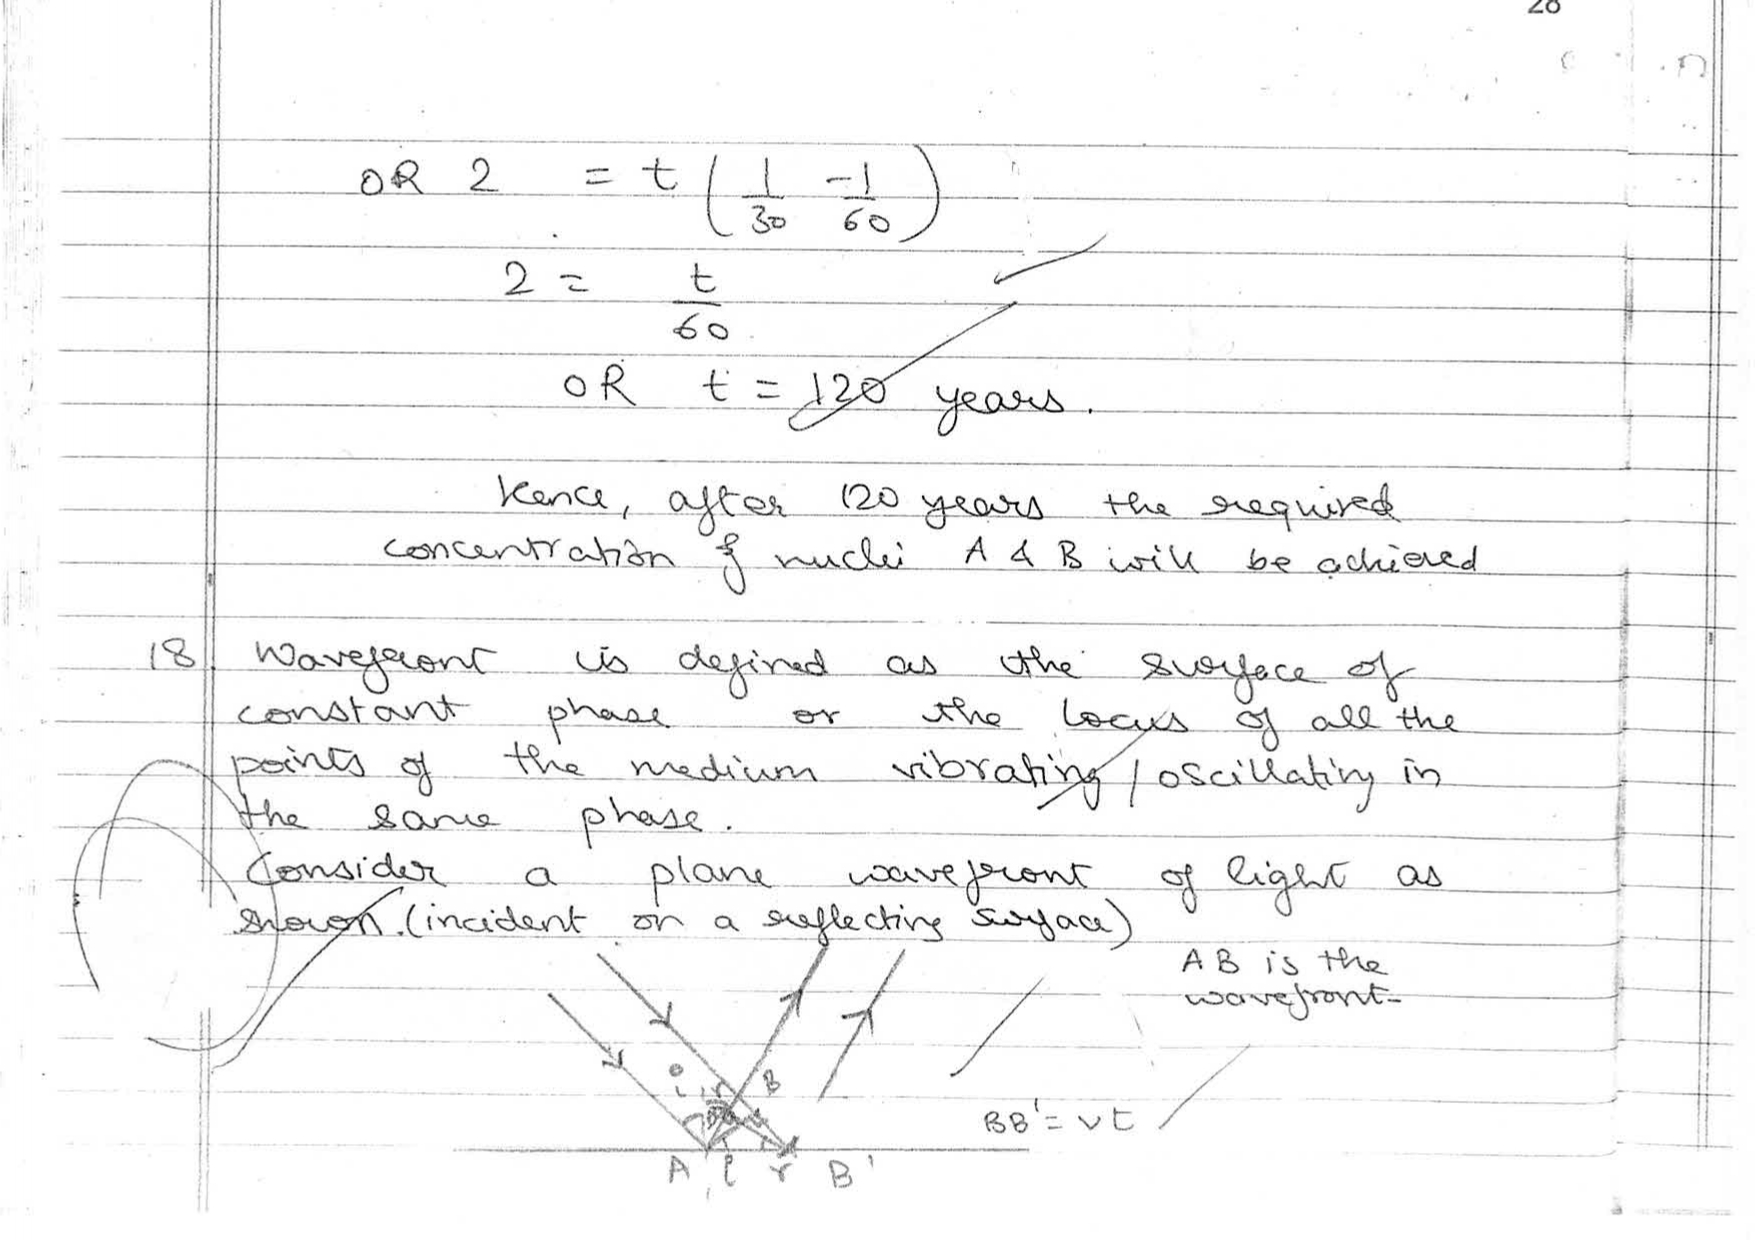 28
OR 2 = t ( 1/30 - 1/60 )
2 = t/60
OR t = 120 years.
Hence, after 120 years the required
concentration of nuclei A & B will be achieved
18. Wavefront is defined as the surface of
constant phase or the locus of all the
points of the medium vibrating / oscillating in
the same phase.
Consider a plane wavefront of light as
shown. (incident on a reflecting surface)
AB is the
wavefront-
i r B
BB' = vt
A i r B'